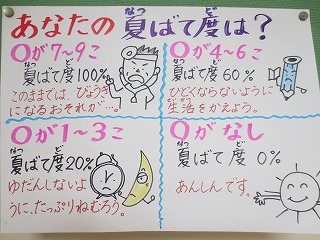 あなたの夏ばて度は？
Oが7～9こ
夏ばて度100%
このままでは、びょうき
になるおそれが…。
Oが4～6こ
夏ばて度60%
ひどくならないように
生活をかえよう。
Oが1～3こ
夏ばて度20%
ゆだんしないよ
うに、たっぷりねむろう。
Oがなし
夏ばて度 0%
あんしんです。